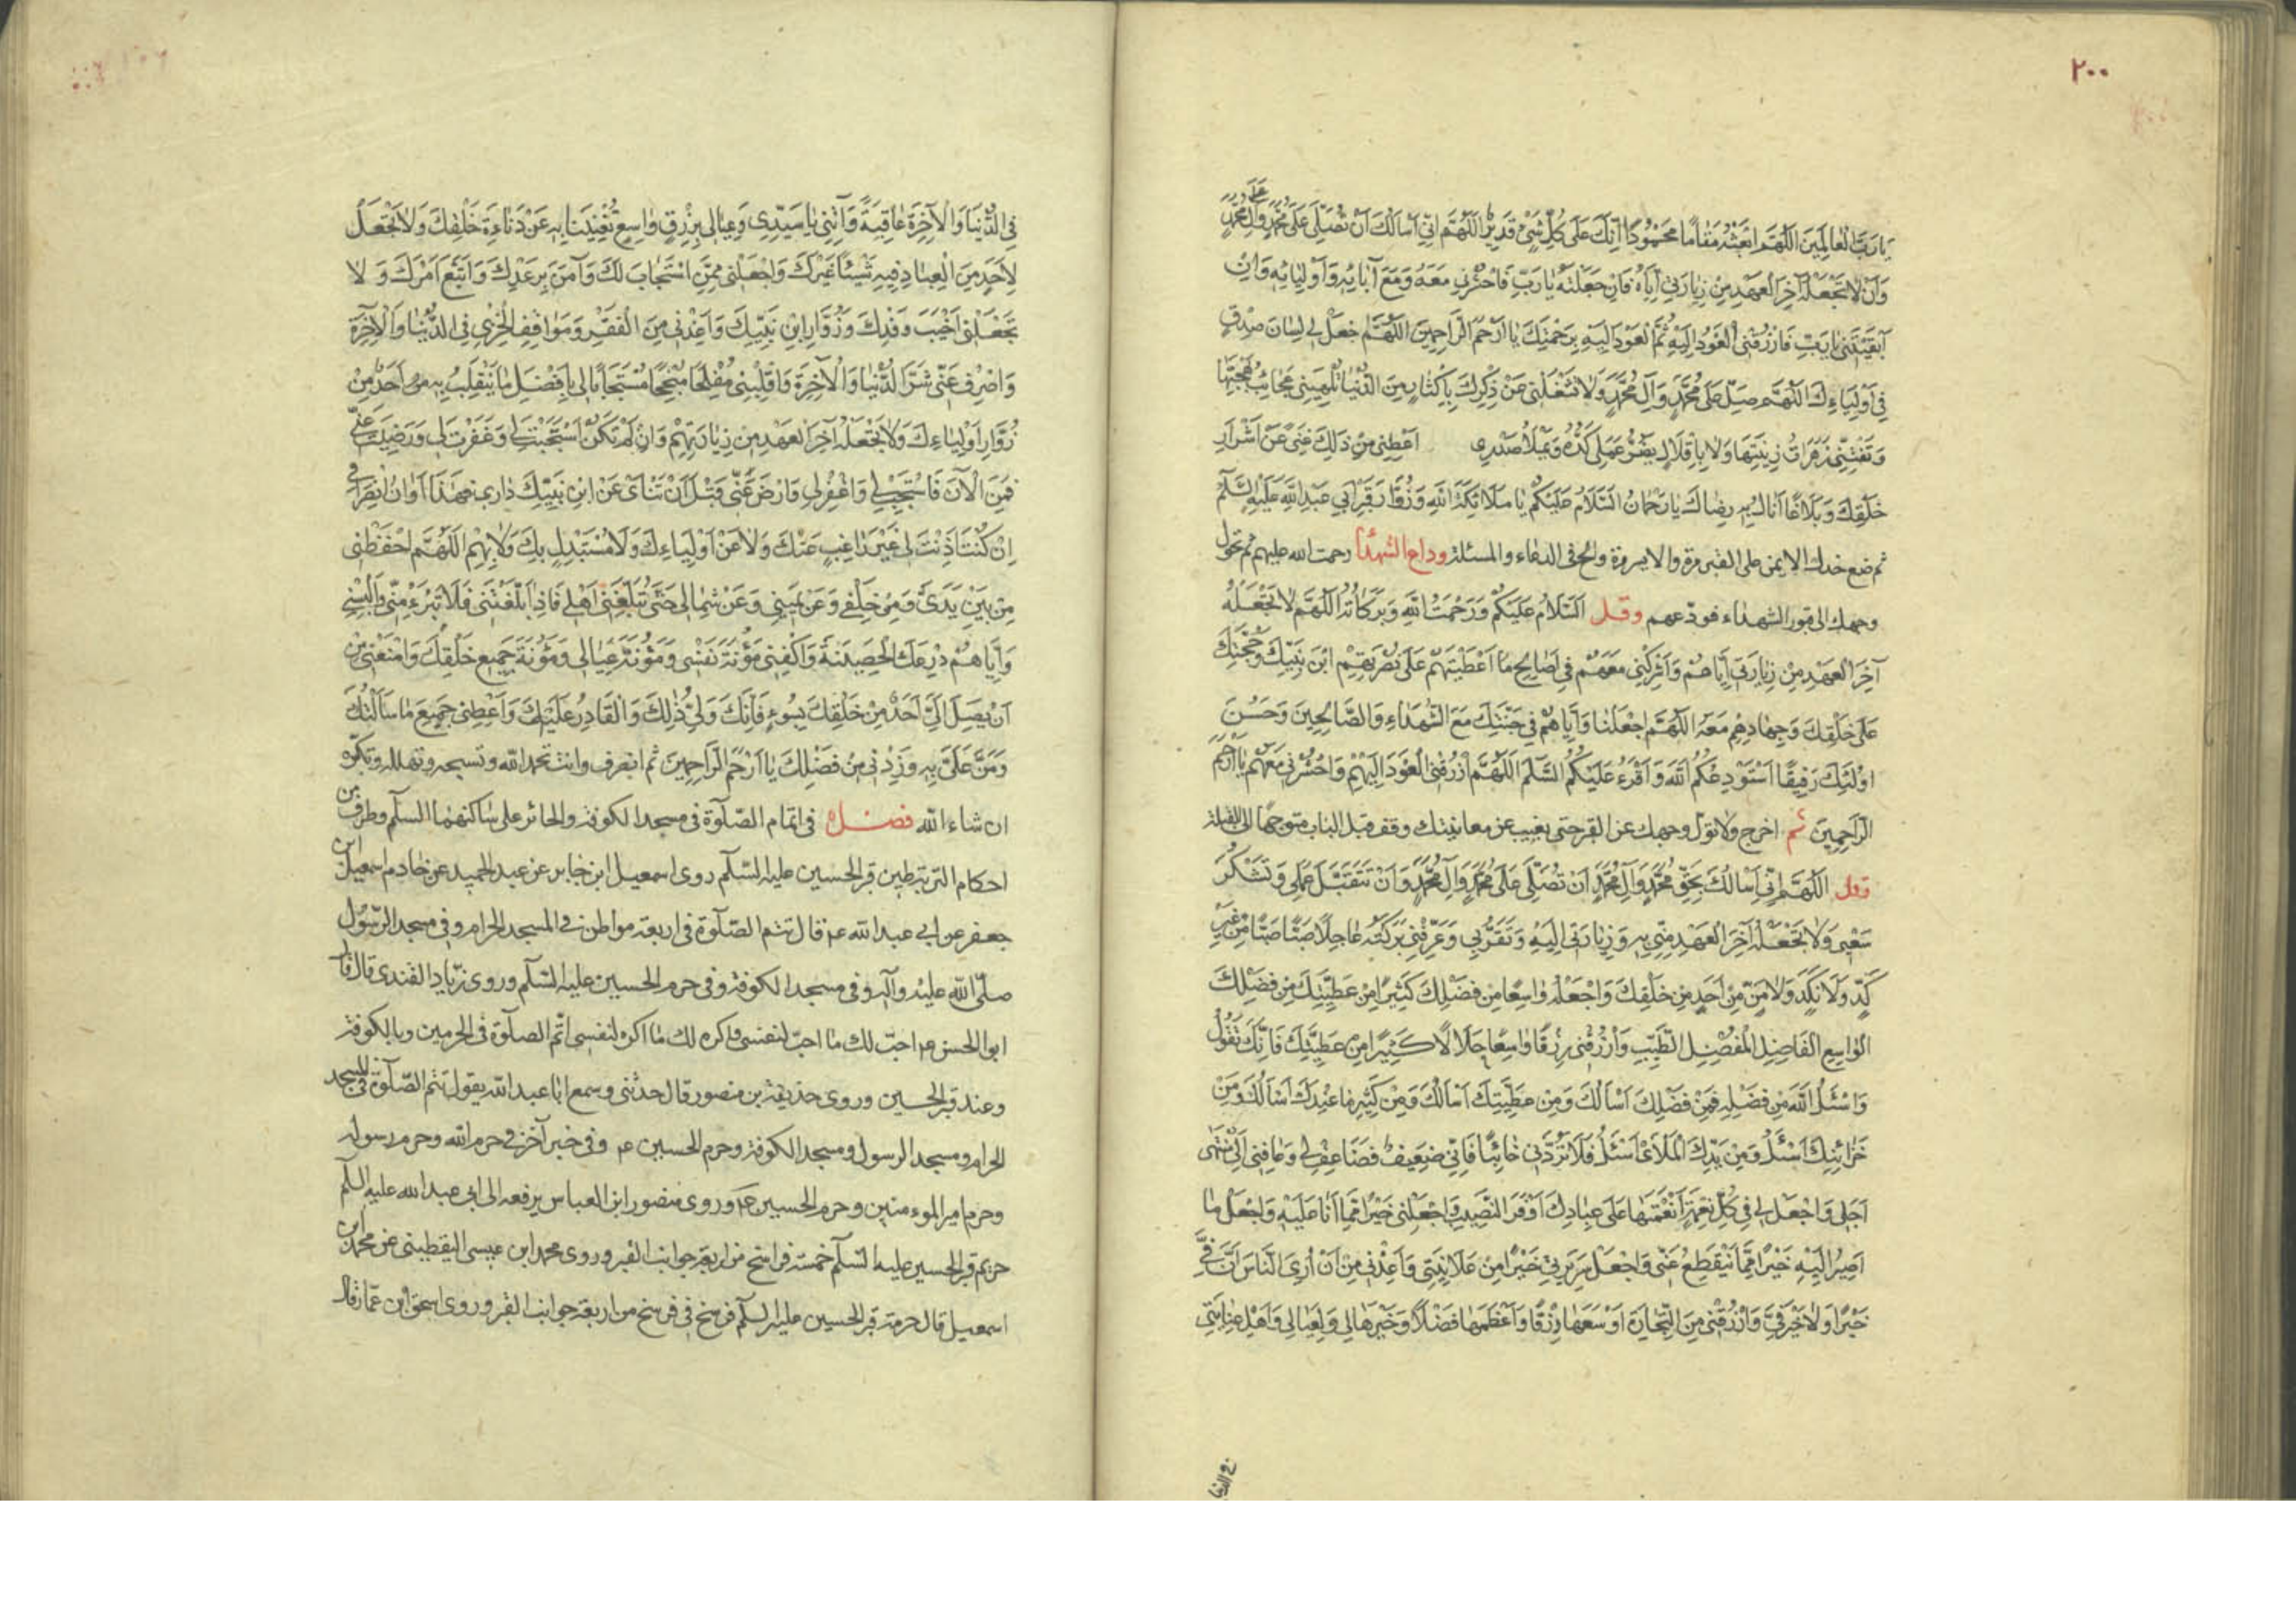 ٢٠٠
يَا رَبَّ الْعَالَمِينَ اللَّهُمَّ ابْعَثْهُ مَقَامًا مَحْمُودًا اِنَّكَ عَلَى كُلِّ شَيْءٍ قَدِيرٌ اللَّهُمَّ اِنِّي اَسْأَلُكَ اَنْ تُصَلِّيَ عَلَى مُحَمَّدٍ وَآلِ مُحَمَّدٍ
وَاَنْ لَا تَجْعَلَهُ آخِرَ الْعَهْدِ مِنْ زِيَارَتِي اِيَّاهُ فَاِنْ جَعَلْتَهُ يَا رَبِّ فَاحْشُرْنِي مَعَهُ وَمَعَ آبَائِهِ وَاَوْلِيَائِهِ وَاِنْ
اَبْقَيْتَنِي يَا رَبِّ فَارْزُقْنِي الْعَوْدَ اِلَيْهِ ثُمَّ الْعَوْدَ اِلَيْهِ بِرَحْمَتِكَ يَا اَرْحَمَ الرَّاحِمِينَ اللَّهُمَّ اجْعَلْ لِي لِسَانَ صِدْقٍ
فِي اَوْلِيَاءِكَ اللَّهُمَّ صَلِّ عَلَى مُحَمَّدٍ وَآلِ مُحَمَّدٍ وَلَا تَشْغَلْنِي عَنْ ذِكْرِكَ بِاِكْثَارٍ مِنَ الدُّنْيَا تُلْهِينِي عَجَائِبُ بَهْجَتِهَا
وَتَفْتِنُنِي زَهَرَاتُ زِينَتِهَا وَلَا بِاِقْلَالٍ يَضُرُّ عَمَلِي كَدُّهُ وَيَمْلَأُ صَدْرِي اَعْطِنِي مِنْ ذَلِكَ غِنًى عَنْ اَشْرَارِ
خَلْقِكَ وَبَلَاغًا اَنَالُ بِهِ رِضَاكَ يَا رَحْمَانُ السَّلَامُ عَلَيْكُمْ يَا مَلَائِكَةَ اللَّهِ وَزُوَّارَ قَبْرِ اَبِي عَبْدِ اللَّهِ عَلَيْهِ السَّلَمُ
ثم ضع خدك الايمن على القبر مرة والايسر مرة والح في الدعاء والمسئلة وداع الشهداء رحمت الله عليهم ثم تحول
وجهك الى قبور الشهداء فودّعهم وقل السَّلَامُ عَلَيْكُمْ وَرَحْمَتُ اللَّهِ وَبَرَكَاتُهُ اللَّهُمَّ لَا تَجْعَلْهُ
آخِرَ الْعَهْدِ مِنْ زِيَارَتِي اِيَّاهُمْ وَاَشْرِكْنِي مَعَهُمْ فِي صَالِحِ مَا اَعْطَيْتَهُمْ عَلَى نُصْرَتِهِمْ ابْنَ نَبِيِّكَ وَحُجَّتَكَ
عَلَى خَلْقِكَ وَجِهَادِهِمْ مَعَهُ اللَّهُمَّ اجْعَلْنَا وَاِيَّاهُمْ فِي جَنَّتِكَ مَعَ الشُّهَدَاءِ وَالصَّالِحِينَ وَحَسُنَ
اُولَئِكَ رَفِيقًا اَسْتَوْدِعُكُمُ اللَّهَ وَاَقْرَءُ عَلَيْكُمُ السَّلَمَ اللَّهُمَّ ارْزُقْنِي الْعَوْدَ اِلَيْهِمْ وَاحْشُرْنِي مَعَهُمْ يَا اَرْحَمَ
الرَّاحِمِينَ ثم اخرج ولا تول وجهك عن القبر حتى يغيب عن معاينتك وقف قبل الباب متوجها الى القبلة
وقل اللَّهُمَّ اِنِّي اَسْأَلُكَ بِحَقِّ مُحَمَّدٍ وَآلِ مُحَمَّدٍ اَنْ تُصَلِّيَ عَلَى مُحَمَّدٍ وَآلِ مُحَمَّدٍ وَاَنْ تَتَقَبَّلَ عَمَلِي وَتَشْكُرَ
سَعْيِي وَلَا تَجْعَلْهُ آخِرَ الْعَهْدِ مِنِّي بِهِ وَزِيَارَتِي اِلَيْهِ وَتَقَرُّبِي وَعَرِّفْنِي بَرَكَتَهُ عَاجِلًا صَبًّا صَبًّا مِنْ غَيْرِ
كَدٍّ وَلَا نَكَدٍ وَلَا مَنٍّ مِنْ اَحَدٍ مِنْ خَلْقِكَ وَاجْعَلْهُ وَاسِعًا مِنْ فَضْلِكَ كَثِيرًا مِنْ عَطِيَّتِكَ مِنْ فَضْلِكَ
الْوَاسِعِ الْفَاضِلِ الْمُفْضِلِ الطَّيِّبِ وَارْزُقْنِي رِزْقًا وَاسِعًا حَلَالًا كَثِيرًا مِنْ عَطِيَّتِكَ فَاِنَّكَ تَقُولُ
وَاسْئَلُوا اللَّهَ مِنْ فَضْلِهِ فَمِنْ فَضْلِكَ اَسْأَلُكَ وَمِنْ عَطِيَّتِكَ اَسْأَلُكَ وَمِنْ كَثِيرِ مَا عِنْدَكَ اَسْأَلُكَ وَمِنْ
خَزَائِنِكَ اَسْئَلُ وَمِنْ يَدِكَ الْمَلْأَى اَسْئَلُ فَلَا تَرُدَّنِي خَائِبًا فَاِنِّي ضَعِيفٌ فَضَاعِفْ لِي وَعَافِنِي اِلَى مُنْتَهَى
اَجَلِي وَاجْعَلْ لِي فِي كُلِّ نِعْمَةٍ اَنْعَمْتَهَا عَلَى عِبَادِكَ اَوْفَرَ النَّصِيبِ وَاجْعَلْنِي خَيْرًا مِمَّا اَنَا عَلَيْهِ وَاجْعَلْ مَا
اَصِيرُ اِلَيْهِ خَيْرًا مِمَّا يَنْقَطِعُ عَنِّي وَاجْعَلْ سَرِيرَتِي خَيْرًا مِنْ عَلَانِيَتِي وَاَعِذْنِي مِنْ اَنْ اُرِيَ النَّاسَ اَنَّ فِيَّ
خَيْرًا وَلَا خَيْرَ فِيَّ وَارْزُقْنِي مِنَ التِّجَارَةِ اَوْسَعَهَا رِزْقًا وَاَعْظَمَهَا فَضْلًا وَخَيْرَهَا لِي وَلِعِيَالِي وَاَهْلِ عِنَايَتِي
فِي الدُّنْيَا وَالْآخِرَةِ عَاقِبَةً وَآتِنِي يَا سَيِّدِي وَعِيَالِي بِرِزْقٍ وَاسِعٍ تُغْنِينَا بِهِ عَنْ دَنَاءَةِ خَلْقِكَ وَلَا تَجْعَلْ
لِاَحَدٍ مِنَ الْعِبَادِ فِيهِ شَيْئًا غَيْرَكَ وَاجْعَلْنِي مِمَّنِ اسْتَجَابَ لَكَ وَآمَنَ بِوَعْدِكَ وَاتَّبَعَ اَمْرَكَ وَلَا
تَجْعَلْنِي اَخْيَبَ وَفْدِكَ وَزُوَّارِ ابْنِ نَبِيِّكَ وَاَعِذْنِي مِنَ الْفَقْرِ وَمَوَاقِفِ الْخِزْيِ فِي الدُّنْيَا وَالْآخِرَةِ
وَاصْرِفْ عَنِّي شَرَّ الدُّنْيَا وَالْآخِرَةِ وَاقْلِبْنِي مُفْلِحًا مُنْجِحًا مُسْتَجَابًا لِي بِاَفْضَلِ مَا يَنْقَلِبُ بِهِ اَحَدٌ مِنْ
زُوَّارِ اَوْلِيَاءِكَ وَلَا تَجْعَلْهُ آخِرَ الْعَهْدِ مِنْ زِيَارَتِهِمْ وَاِنْ لَمْ تَكُنْ اسْتَجَبْتَ لِي وَغَفَرْتَ لِي وَرَضِيتَ عَنِّي
فَمِنَ الْآنَ فَاسْتَجِبْ لِي وَاغْفِرْ لِي وَارْضَ عَنِّي قَبْلَ اَنْ تَنْأَى عَنِ ابْنِ نَبِيِّكَ دَارِي فَهَذَا اَوَانُ انْصِرَافِي
اِنْ كُنْتَ اَذِنْتَ لِي غَيْرَ رَاغِبٍ عَنْكَ وَلَا عَنْ اَوْلِيَاءِكَ وَلَا مُسْتَبْدِلٍ بِكَ وَلَا بِهِمْ اللَّهُمَّ احْفَظْنِي
مِنْ بَيْنِ يَدَيَّ وَمِنْ خَلْفِي وَعَنْ يَمِينِي وَعَنْ شِمَالِي حَتَّى تُبَلِّغَنِي اَهْلِي فَاِذَا بَلَّغْتَنِي فَلَا تَبْرَءْ مِنِّي وَاَلْبِسْنِي
وَاِيَّاهُمْ دِرْعَكَ الْحَصِينَةَ وَاكْفِنِي مَؤُنَةَ نَفْسِي وَمَؤُنَةَ عِيَالِي وَمَؤُنَةَ جَمِيعِ خَلْقِكَ وَامْنَعْنِي مِنْ
اَنْ يَصِلَ اِلَيَّ اَحَدٌ مِنْ خَلْقِكَ بِسُوءٍ فَاِنَّكَ وَلِيُّ ذَلِكَ وَالْقَادِرُ عَلَيْهِ وَاَعْطِنِي جَمِيعَ مَا سَأَلْتُكَ
وَمُنَّ عَلَيَّ بِهِ وَزِدْنِي مِنْ فَضْلِكَ يَا اَرْحَمَ الرَّاحِمِينَ ثم انصرف وانت تحمد الله وتسبحه وتهلله وتكبّره
ان شاء الله فصل في اتمام الصّلوة في مسجد الكوفة والحائر على ساكنهما السلم وطرف من
احكام التربة طين قبر الحسين عليه السّلم روى اسمعيل ابن جابر عن عبد الحميد عن خادم اسمعيل ابن
جعفر عن ابي عبد الله ع قال تتم الصّلوة في اربعة مواطن في المسجد الحرام وفي مسجد الرّسول
صلّى الله عليه وآله وفي مسجد الكوفة وفي حرم الحسين عليه السّلم وروى زياد القندي قال قال
ابو الحسن ع احبّ لك ما احبّ لنفسي واكره لك ما اكره لنفسي اتم الصلوة في الحرمين وبالكوفة
وعند قبر الحسين وروى حذيفة بن منصور قال حدثني من سمع ابا عبد الله يقول تتم الصّلوة في المسجد
الحرام ومسجد الرسول ومسجد الكوفة وحرم الحسين ع وفي خبر آخر في حرم الله وحرم رسوله
وحرم امير الموءمنين وحرم الحسين ع وروى منصور ابن العباس يرفعه الى ابي عبد الله عليه السلم
حريم قبر الحسين عليه السّلم خمسة فراسخ من اربعة جوانب القبر وروى محمد ابن عيسى اليقطيني عن محمد ابن
اسمعيل قال حرمة قبر الحسين عليه السلم فرسخ في فرسخ من اربعة جوانب القبر وروى اسحق ابن عمار قال